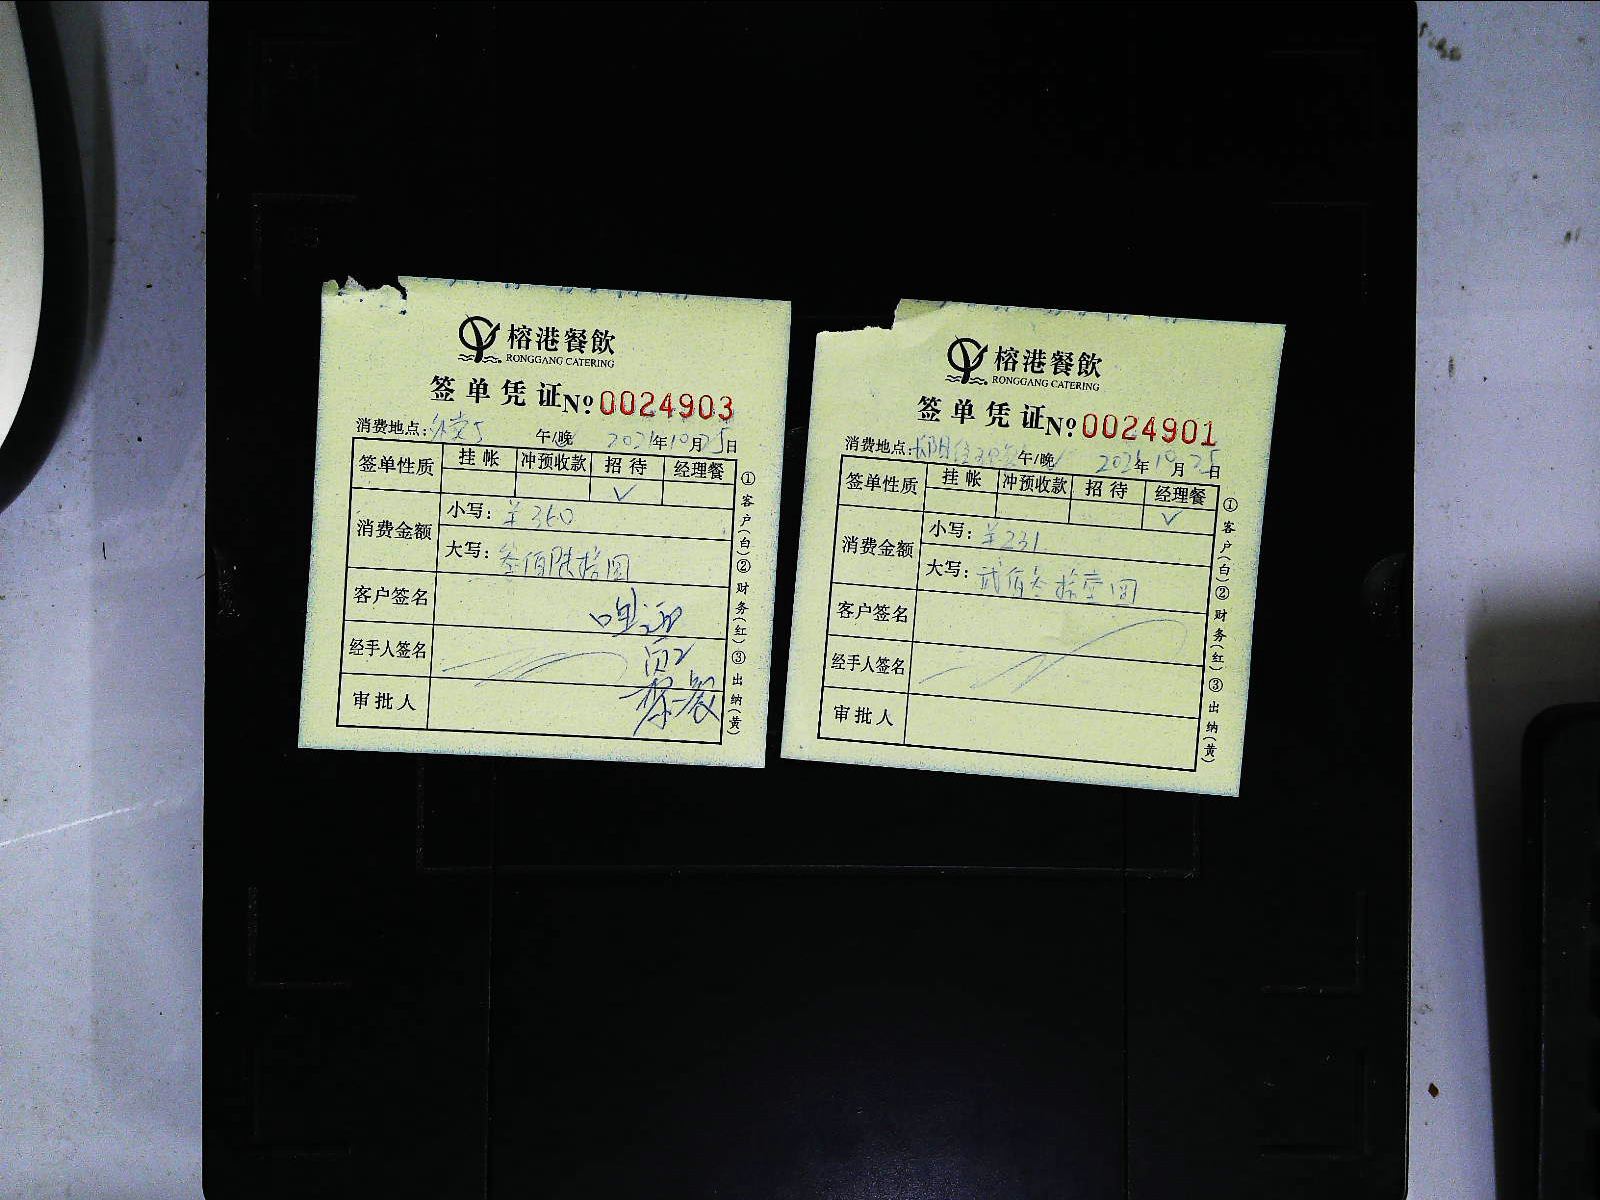 榕港餐飲
RONGGANG CATERING
签单凭证 No 0024903
消费地点: 午/晚 2021年10月25日
签单性质 挂帐 冲预收款 招待 经理餐
✓
消费金额 小写: ¥360
大写: 叁佰陆拾圆
客户签名
经手人签名
审批人
①客户(白)②财务(红)③出纳(黄)
榕港餐飲
RONGGANG CATERING
签单凭证 No 0024901
消费地点: 午/晚 2021年10月25日
签单性质 挂帐 冲预收款 招待 经理餐
✓
消费金额 小写: ¥231
大写: 贰佰叁拾壹圆
客户签名
经手人签名
审批人
①客户(白)②财务(红)③出纳(黄)